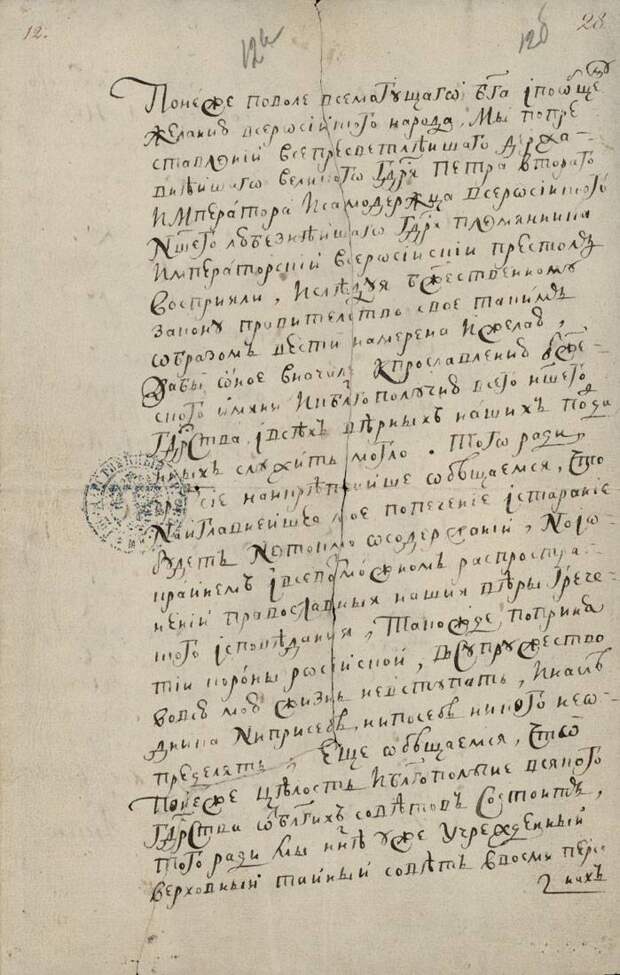 12.
12а
12б
28
Понеже поволе всемогущаго бга їпообще
желанию всеросиискаго народа, Мы попре
ставлениї всепресветлѣишаго держа-
внѣишаго великого гдря Петра втораго
Императора исамодержца всеросиискаго
Ншего любезнѣишаго гдря племянника
Императорскиї всеросиїскиї престолъ
восприяли, ислѣдуя бжественному
закону правителство свое такимъ
образомъ вести намерена ижелаю,
дабы оное вначалѣ кпрославлению бже-
скаго имяни иблгополучию всего ншего
гдрства, їсѣхъ вѣрныхъ нашихъ подда
нныхъ служить могло. Того ради,
чрезъ сие наикрѣпчаише обѣщаемся, что
наиглавнеишее мое попечение їстарание
будетъ нетокмо осодержаниї, но їо
краинемъ їевсевозможномъ распростра-
нениї православныя нашия вѣры грече-
скаго їсповѣдания, такожде, поприня
тїи короны росиискои, всупружество
вовсю мою жизнь невступать, инаслѣ
дника, ниприсебѣ, нипосебѣ никого нео-
пределять, Еще обѣщаемся, что
понеже цѣлость иблгополучие всякого
гдрства отблгихъ совѣтовъ состоитъ,
того ради мы ннѣ уже учрежденный
верховный таиный совѣтъ ввосми персо
нахъ